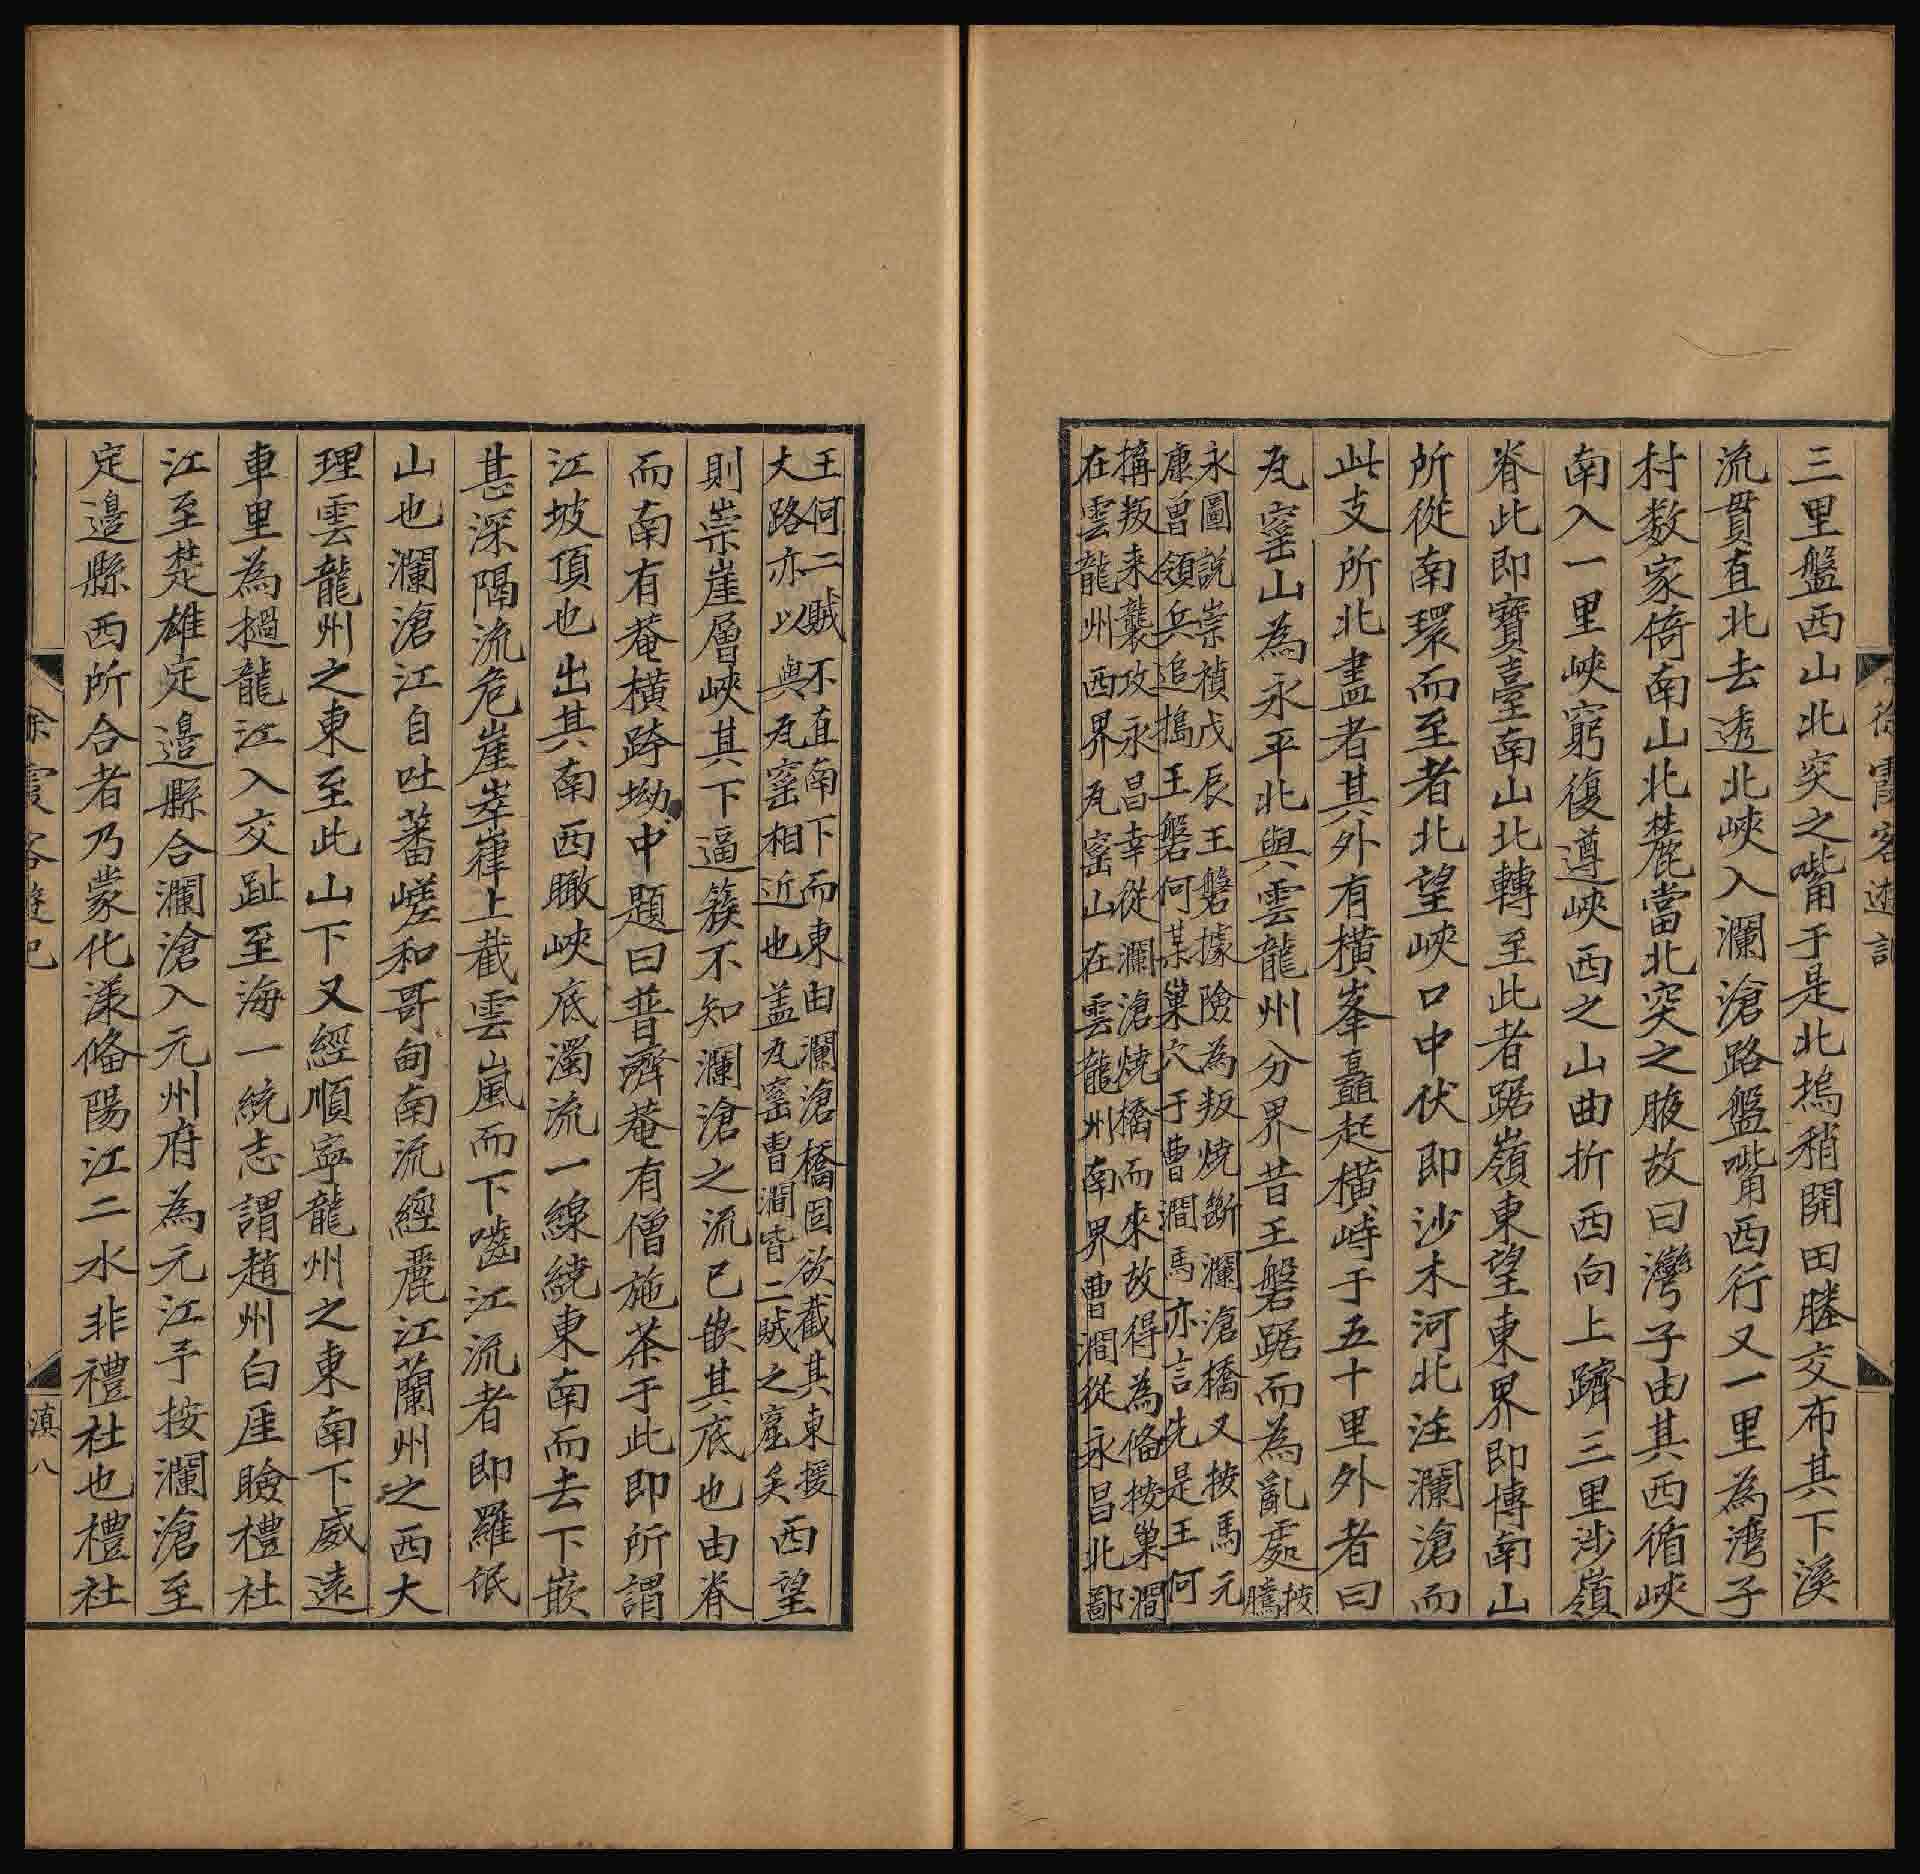 徐霞客遊記
三里盤西山北突之嘴于是北塢稍開田塍交布其下溪
流貫直北去透北峽入瀾滄路盤嘴西行又一里為湾子
村数家倚南山北麓當北突之腋故曰灣子由其西循峽
南入一里峽窮復遵峽西之山曲折西向上躋三里渉嶺
脊此即寶臺南山北轉至此者踞嶺東望東界即博南山
所從南環而至者北望峽口中伏即沙木河北注瀾滄而
此支所北盡者其外有橫峯矗起橫峙于五十里外者曰
瓦窰山為永平北與雲龍州分界昔王磐踞而為亂處按
騰
永圖說崇禎戊辰王磐據險為叛焼斷瀾滄橋又按馬元
康曽領兵追搗王磐何某巢穴于曹澗馬亦言先是王何
搆叛来襲攻永昌幸從瀾滄焼橋而來故得為俻按巢澗
在雲龍州西界瓦窰山在雲龍州南界曹澗從永昌北鄙
王何二賊不直南下而東由瀾滄橋固欲截其東援
大路亦以與瓦窰相近也盖瓦窰曹澗皆二賊之窟矣西望
則崇崖層峽其下逼簇不知瀾滄之流已嵌其底也由脊
而南有菴橫跨坳中題曰普濟菴有僧施茶于此即所謂
江坡頂也出其南西瞰峽底濁流一線繞東南而去下嵌
甚深隔流危崖崒嵂上截雲嵐而下嚙江流者即羅岷
山也瀾滄江自吐蕃嵯和哥甸南流經麗江蘭州之西大
理雲龍州之東至此山下又經順寧龍州之東南下威遠
車里為撾龍江入交趾至海一統志謂趙州白厓瞼禮社
江至楚雄定邉縣合瀾滄入元州府為元江予按瀾滄至
定邉縣西所合者乃蒙化漾俻陽江二水非禮社也禮社
徐霞客遊記
滇八